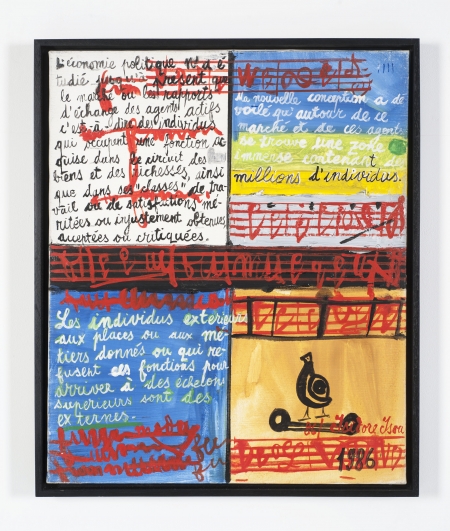 L'économie politique n'a é-
tudié jusqu'à présent que
le marché ou les rapports
d'échange des agents actifs
c'est-à-dire des individus
qui occupent une fonction ac
quise dans le circuit des
biens et des richesses, ainsi
que dans ses "classes" de tra-
vail ou de satisfactions mé-
ritées ou injustement obtenues
acceptées ou critiquées.
Ma nouvelle conception a dé
voilé qu'autour de ce
marché et de ces agents
se trouve une zone
immense contenant des
millions d'individus.
Les individus extérieurs
aux places ou aux mé-
tiers donnés ou qui re-
fusent ces fonctions pour
arriver à des échelons
supérieurs sont des
externes.
Isidore Isou
1986